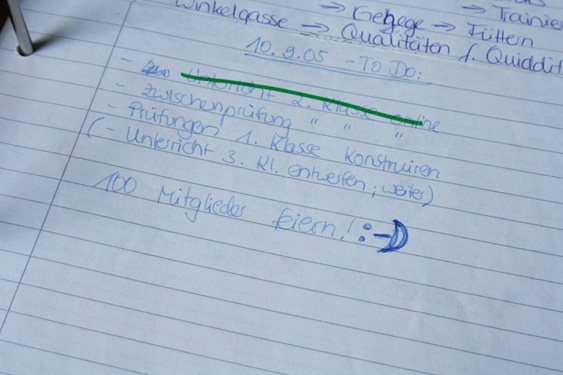 → Gehege → Trainie
Winkelgasse → Füttern
→ Qualitäten f. Quiddit
10.9.05 - TO DO:
- Unterricht 2. Klasse online
- Zwischenprüfung " " "
- Prüfungen 1. Klasse konstruiren
(- Unterricht 3. Kl. entwerfen, weiter)
100 Mitglieder feiern! :-)